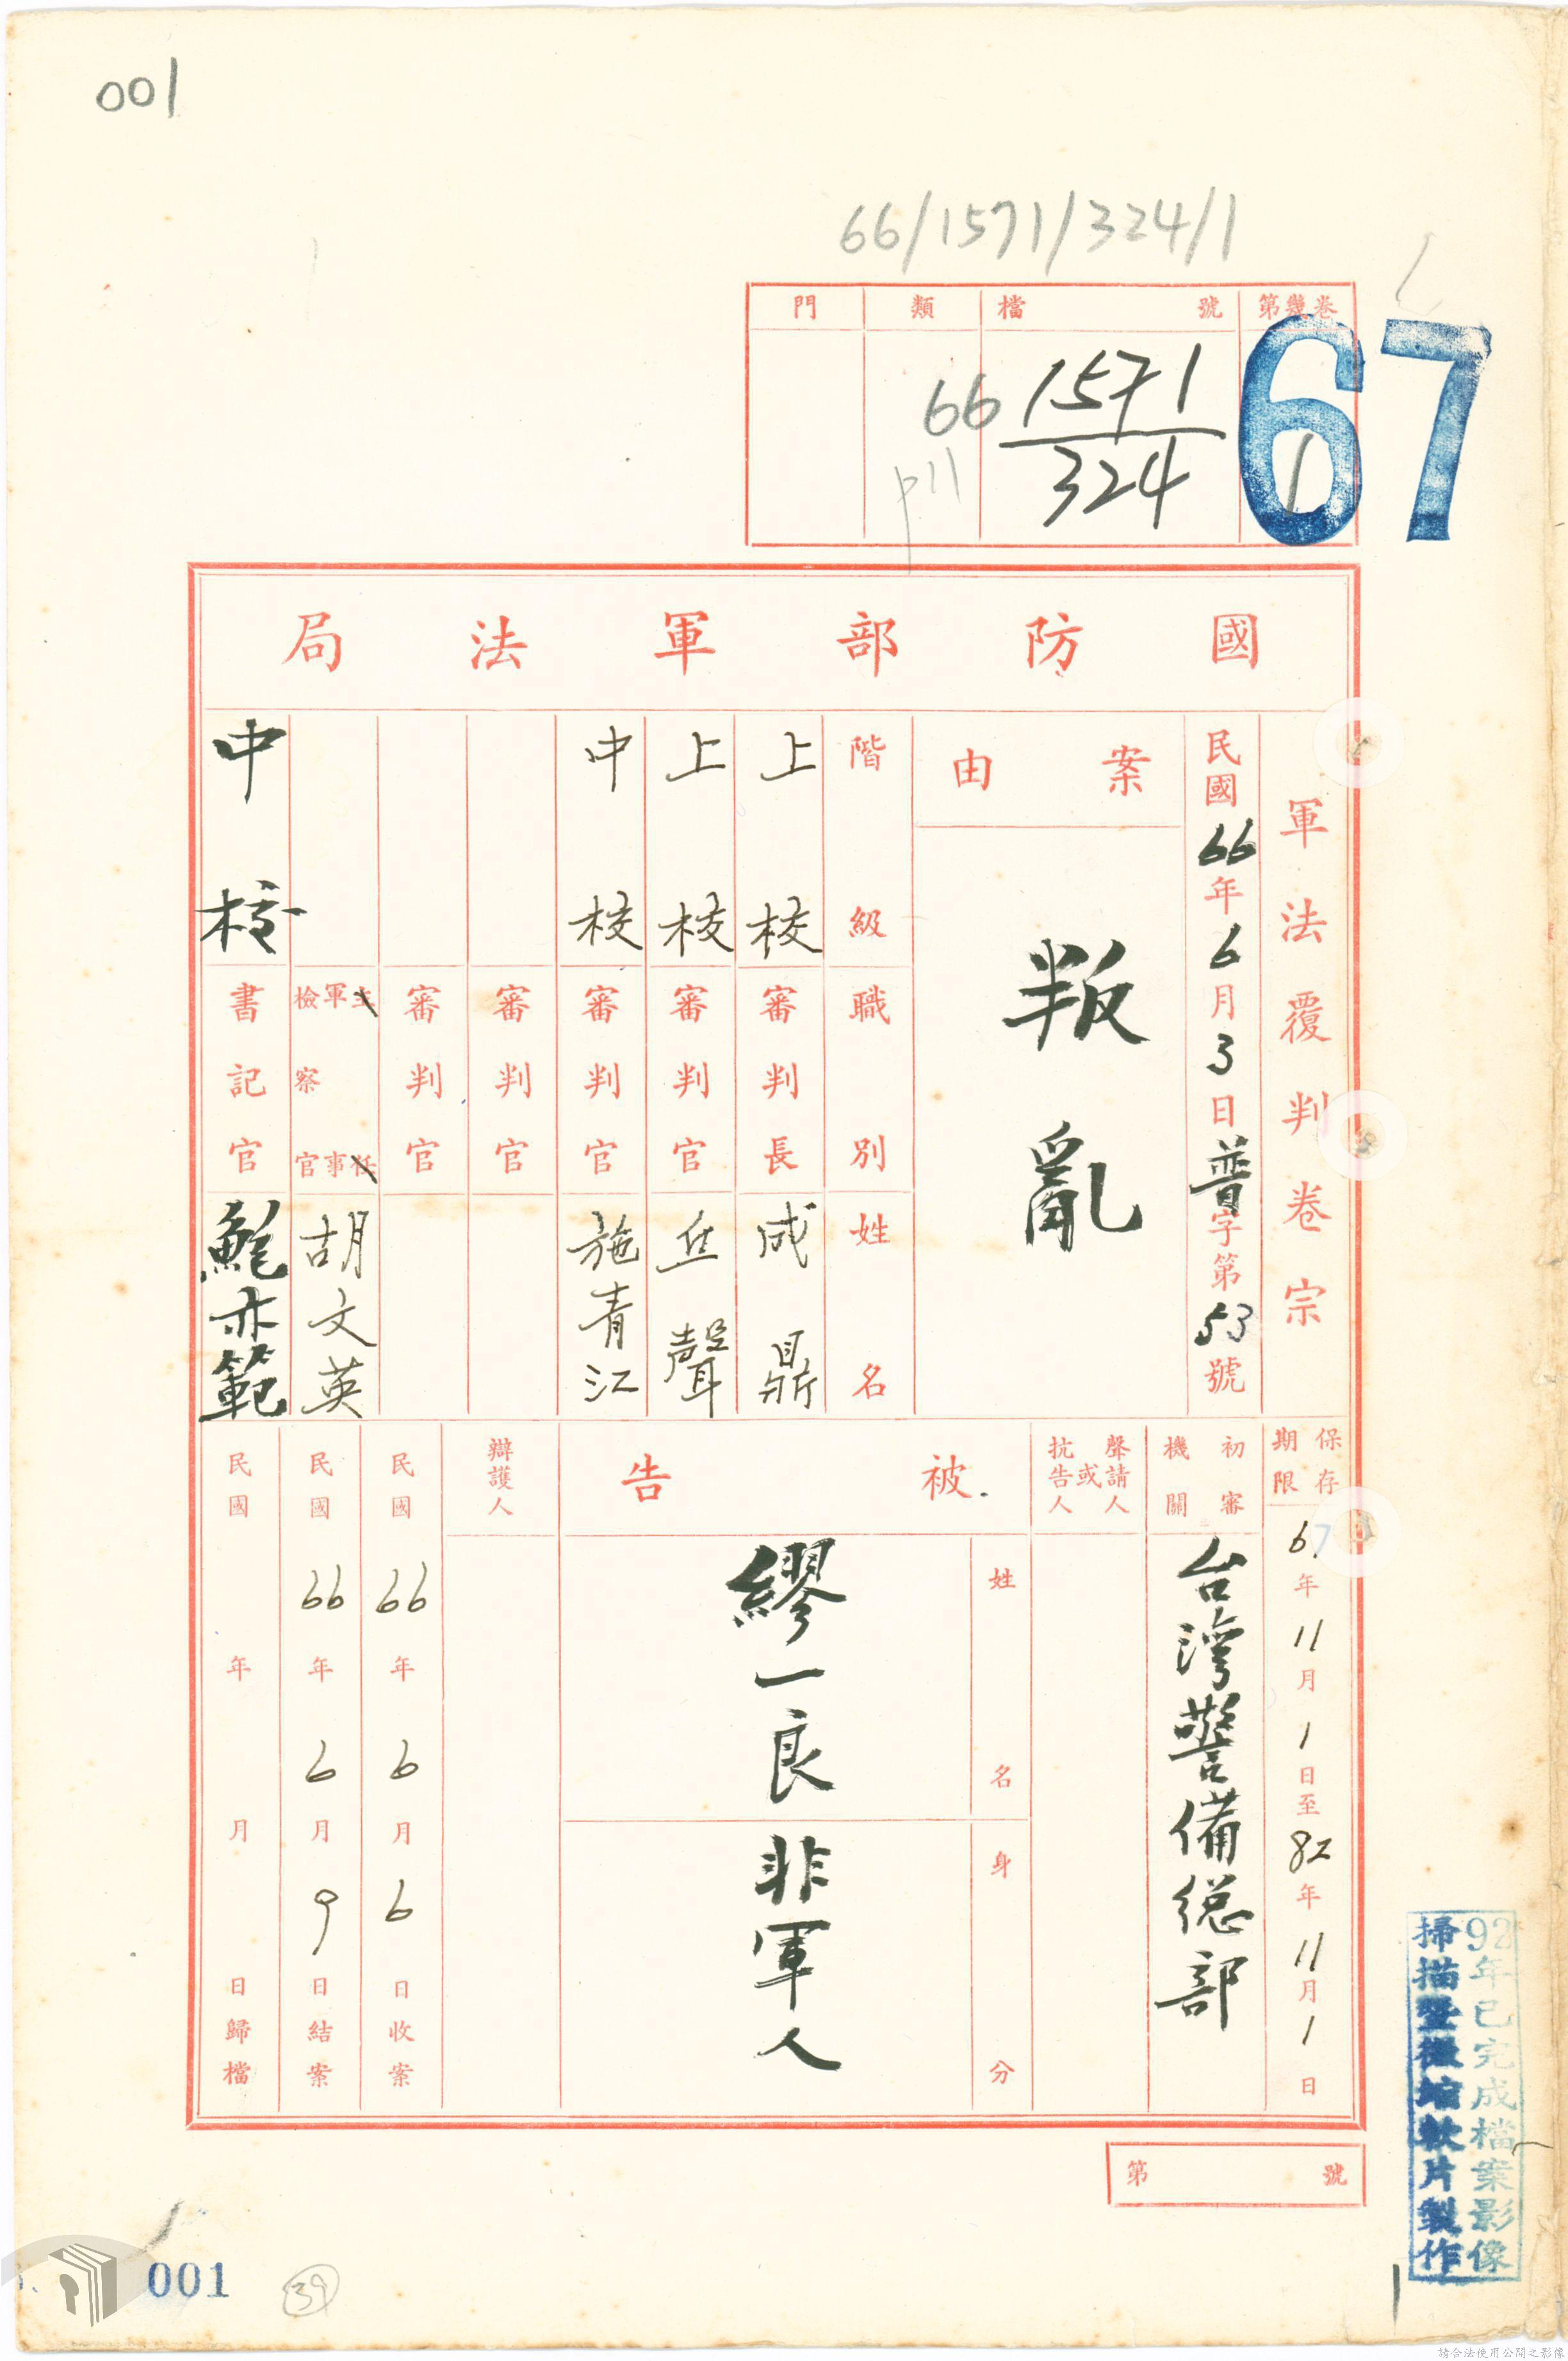 001
66/1571/324/1
第幾卷
1
檔號
1571
324
類
66
p11
門
67
國防部軍法局
軍法覆判卷宗
民國66年6月3日普字第53號
案由
叛亂
階級 職別 姓名
上校 審判長 成鼎
上校 審判官 丘聲
中校 審判官 施青江
審判官
審判官
主任軍事檢察官 胡文英
中校 書記官 鮑亦範
保存期限
67年11月1日至82年11月1日
初審機關
台灣警備總部
聲請人或抗告人
被告
姓名
繆一良
身分
非軍人
辯護人
民國66年6月6日收案
民國66年6月9日結案
民國 年 月 日歸檔
第 號
92年已完成檔案影像
掃描暨微縮軟片製作
001
39
請合法使用公開之影像